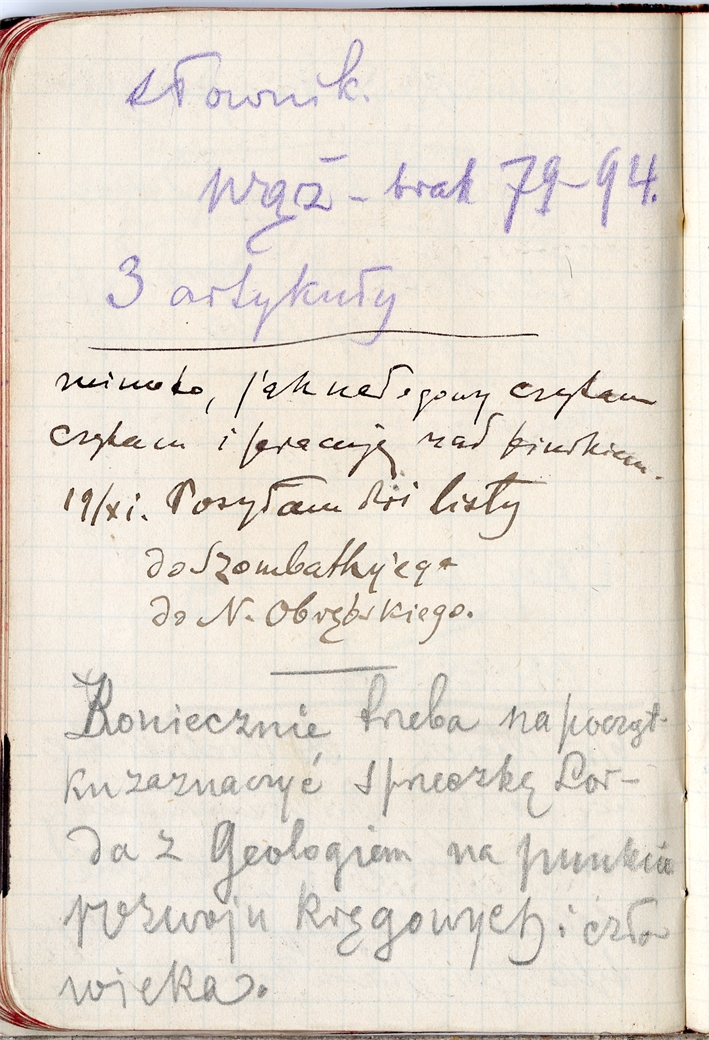 słownik.
wąż – brak 79–94.
3 artykuły
jak nałogowy czytam
czytam i pracuję nad
19/XI. Posyłam dziś listy
do Szombathy'ego
do N. Obrębskiego.
Koniecznie trzeba na począt-
ku zaznaczyć sprzeczkę Lor-
da z Geologiem na punkcie
rozwoju kręgowych i czło
wieka.